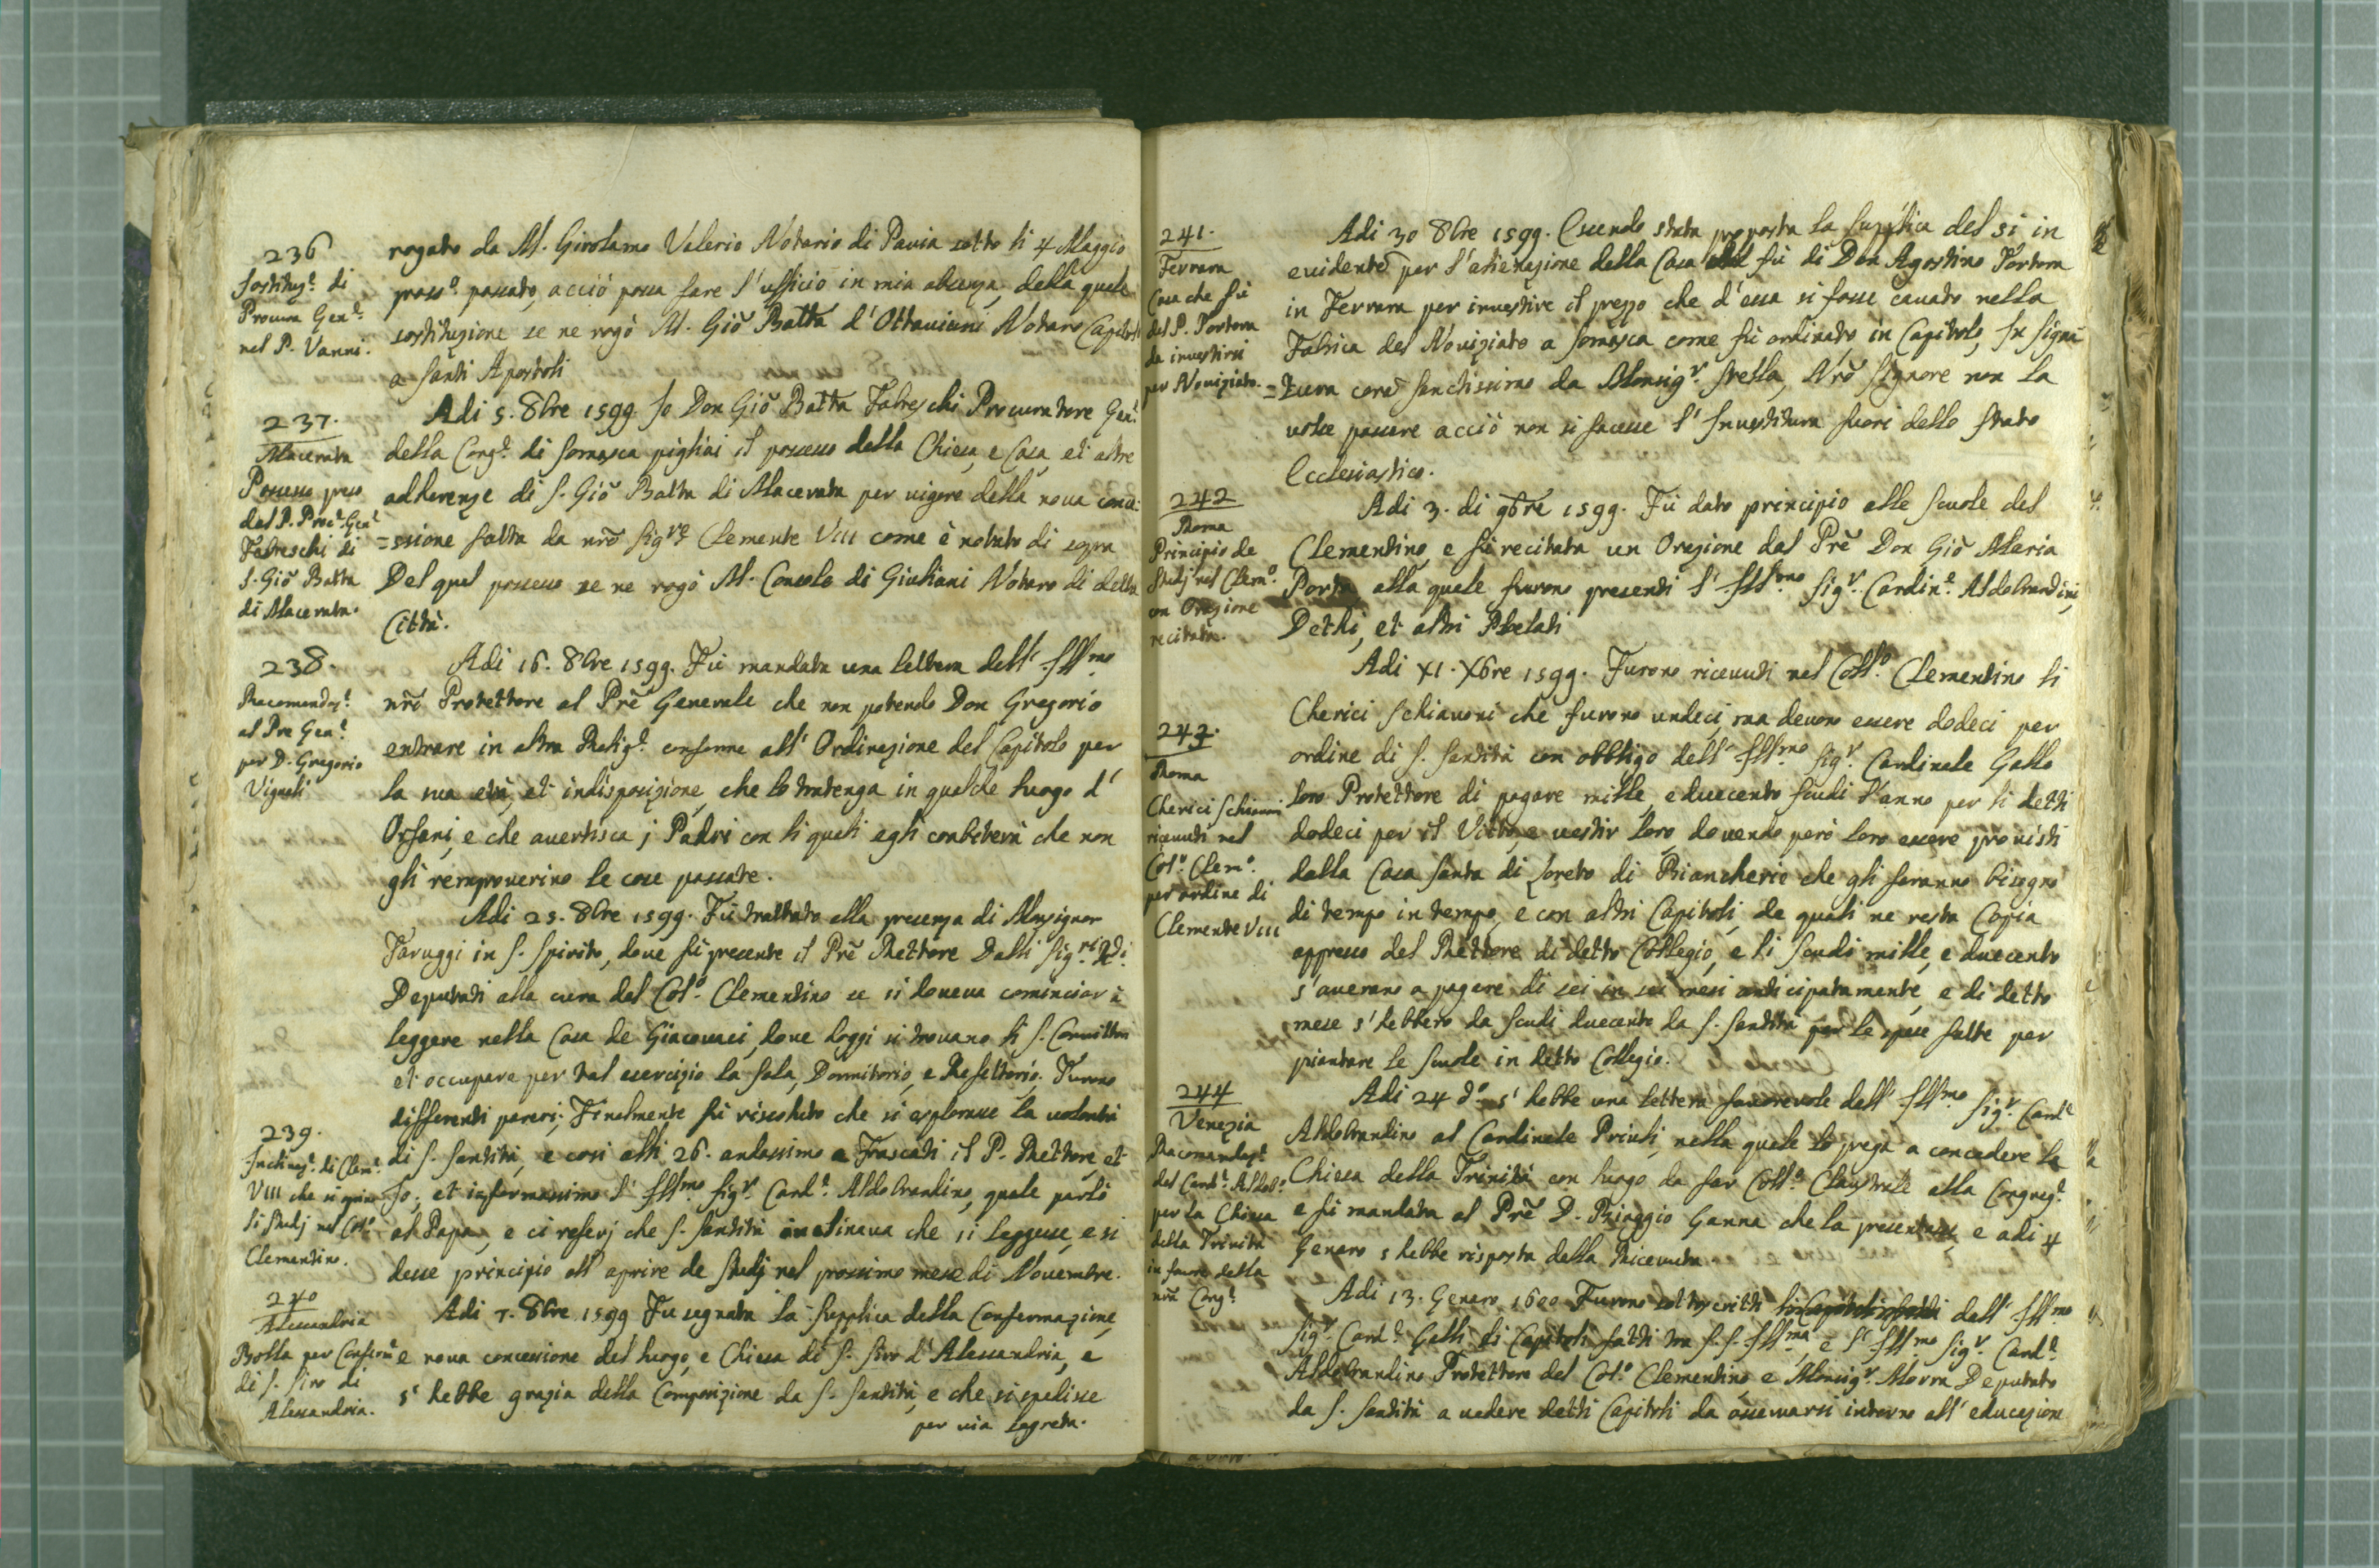 236
Sostituz.e di
Procura Gen.le
nel P. Vanni.
rogato da M. Girolamo Valerio Notario di Pavia sotto li 4 Maggio
pross.o passato, acciò possa fare l'ufficio in mia absenza, della quale
sostituzione se ne rogò M. Giõ Batta d'Ottaviani Notaro Capitol.
a Santi Apostoli
237.
Macerata
Possesso preso
dal P. Proc.r Gen.le
Fabreschi di
S. Giõ Batta
di Macerata.
Adi 5. 8bre 1599. Io Don Giõ Batta Fabreschi Procuratore Gen.le
della Cong.e di Somasca pigliai il possesso della Chiesa, e Casa, et altre
adherenze di S. Giõ Batta di Macerata per vigore della nova conce:
=ssione fatta da nrõ Sig.re Clemente VIII come è notato di sopra
Del qual possesso se ne rogò M. Consolo di Giuliani Notaro di detta
Città.
238.
Racomandaz.e
al Pre Gen.le
per D. Gregorio
Vignali
Adi 16. 8bre 1599. Fù mandata una lettera dell' Ill.mo
nrõ Protettore al Prẽ Generale che non potendo Don Gregorio
entrare in altra Relig.e conforme all' Ordinazione del Capitolo per
la sua età, et indisposizione, che lo trattenga in qualche luogo d'
Orfani, e che avertisca j Padri con li quali egli conbiterà che non
gli remproverino le cose passate.
Adi 25. 8bre 1599. Fù trattato alla presenza di Monsignor
Taruggi in S. Spirito, dove fù presente il Prẽ Rettore Dalli Sig.ri
Deputati alla cura del Col.o Clementino se si doveva cominciar à
leggere nella Casa de Giacovaci, dove loggi si trovano li S. Convittori
et occupare per tal esercizio la Sala, Dormitorio, e Refettorio. Furono
differenti pareri; Finalmente fù risoluto che si esplorasse la volontà
239.
Inclinaz.e di Clem.te
VIII che si aprino
li Studj nel Col.o
Clementino.
di S. Santità, e cosi alli 26. andassimo a Frascati il P. Rettore et
Io; et informassimo l' Ill.mo Sig.r Card.le Aldobrandino, quale parlò
al Papa, e ci referj che S. Santità inclinava che si leggesse, e si
desse principio all' aprire de Studj nel prossimo mese di Novembre.
240
Alessandria
Bolla per Conferm.e
di S. Siro di
Alessandria.
Adi 7. 8bre 1599 Fu segnata la Supplica della Confermazione,
e nova concessione del luogo, e Chiesa di S. Siro d'Alessandria, e
s' hebbe grazia della Composizione da S. Santità, e che si spedisse
per via Segreta.
241.
Ferrara
Casa che fù
del P. Tortora
da investirsi
per Noviziato.
Adi 30 8bre 1599. Essendo stata proposta la Supplica del si in
evidentẽ per l'alienazione della Casa fù di Don Agostino Tortora
in Ferrara per investire il prezzo che d'essa si fosse cavato nella
Fabrica del Noviziato a Somasca come fù ordinato in Capitolo, In Signa
=tura corã Sanctissimo da Monsig.r Stella, Nrõ Signore non la
volse passare acciò non si facesse l' Investitura fuori dello Stato
Ecclesiastico.
242
Roma
Principio de
Studj nel Clem.o
con Orazione
recitata.
Adi 3. di 9bre 1599. Fù dato principio alle Scuole del
Clementino, e fù recitata un Orazione dal Prẽ Don Giõ Maria
Porta alla quale furono presenti l' Ill.mo Sig.r Cardin.e Aldobrandini,
Dethi, et altri Prelati
243.
Roma
Cherici Schiavoni
ricevuti nel
Col.o Clem.o
per ordine di
Clemente VIII
Adi XI. Xbre 1599. Furono ricevuti nel Coll.o Clementino li
Cherici Schiavoni che furono undeci, ma devono essere dodeci per
ordine di S. Santità con obbligo dell' Ill.mo Sig.r Cardinale Gallo
loro Protettore di pagare mille, e duecento Scudi l'anno per li detti
dodeci per il Vitto, e vestir loro, dovendo però loro essere provisti
dalla Casa Santa di Loreto di Biancherie che gli saranno bisogno
di tempo in tempo, e con altri Capitoli, de quali ne resta Copia
appresso del Rettore di detto Collegio, e li Scudi mille, e duecento
s'averano a pagare di sei in sei mesi anticipatamente, e di detto
mese s'hebbero da Scudi duecento da S. Santità per le spese fatte per
piantare le Scuole in detto Collegio.
244
Venezia
Racomandaz.e
del Card.e Aldob.o
per la Chiesa
della Trinità
in favore della
nrã Cong.e
Adi 24 d.o s' hebbe una lettera favorevole dell' Ill.mo Sig.r Card.e
Aldobrandino al Cardinale Priuli, nella quale lo prega a concedere la
Chiesa della Trinità con luogo da far Coll.o Claustrale alla Congreg.e
e fù mandata al Prẽ D. Priaggio Ganna che la presentasse, e adi 4
Genaro s hebbe risposta della Ricevuta
Adi 13. Genaro 1600 Furono sottoscritti dell' Ill.mo
Sig.r Card.e Galli li Capitoli fatti tra S. S. Ill.ma, e l' Ill.mo Sig.r Card.e
Aldobrandino Protettore del Col.o Clementino, e Monsig.r Morra Deputato
da S. Santità a vedere detti Capitoli da osservarsi intorno all' educazione